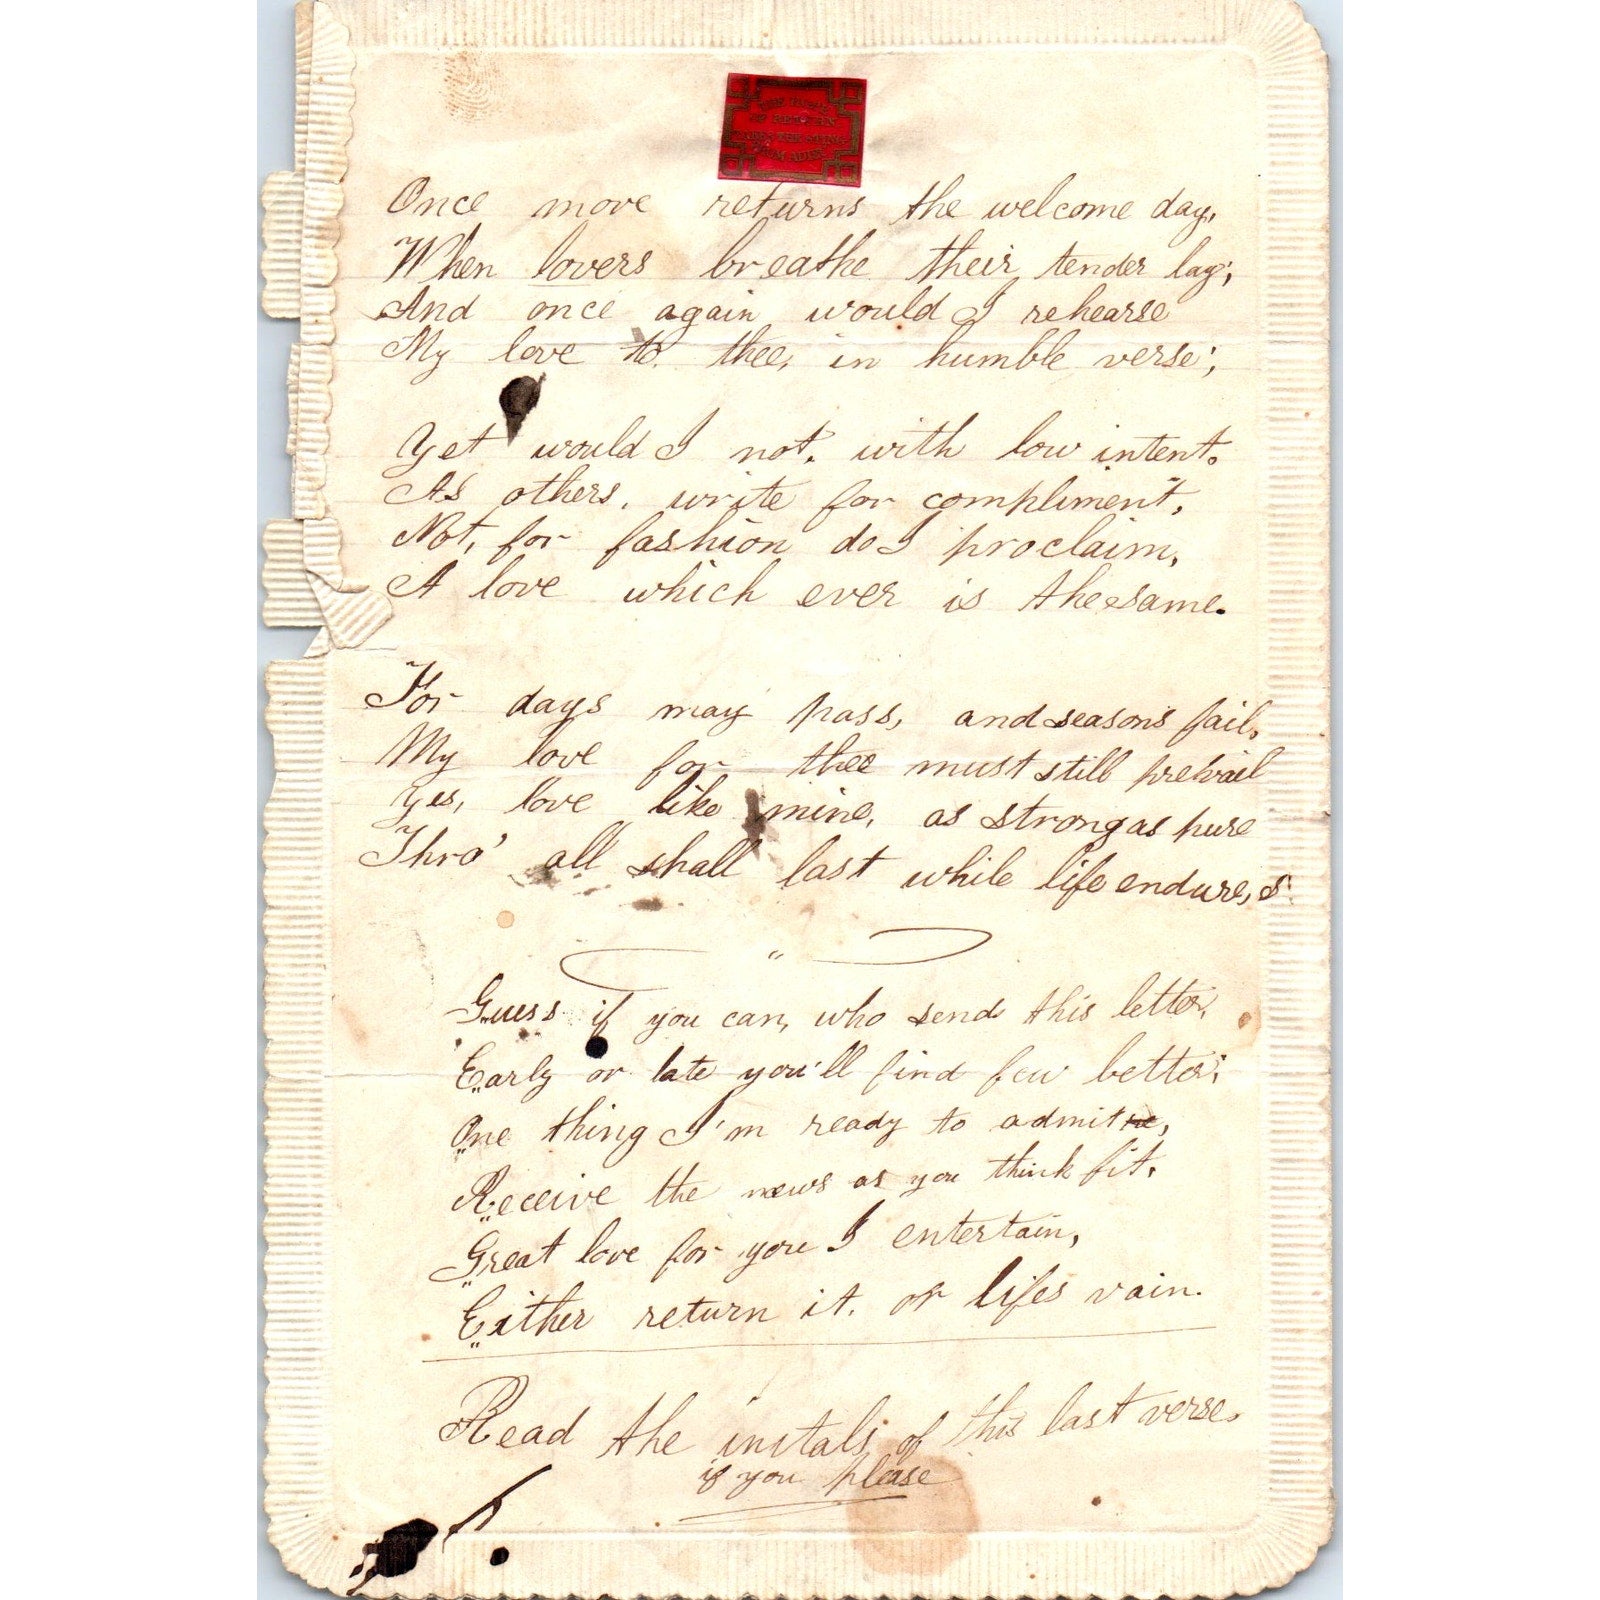 THE
OF RETURN
Once more returns the welcome day,
When lovers breathe their tender lay;
And once again would I rehearse
My love to thee, in humble verse;
Yet would I not, with low intent,
As others, write for compliment,
Not, for fashion do I proclaim,
A love which ever is the same.
For days may pass, and seasons fail,
My love for thee must still prevail
Yes, love like mine, as strong as pure
Thro' all shall last while life endure, s
"
Guess if you can, who send this letter,
Early or late you'll find few better;
One thing I'm ready to admit,
Receive the news as you think fit,
Great love for you I entertain,
Either return it, or lifes vain.
Read the initals of this last verse.
if you please